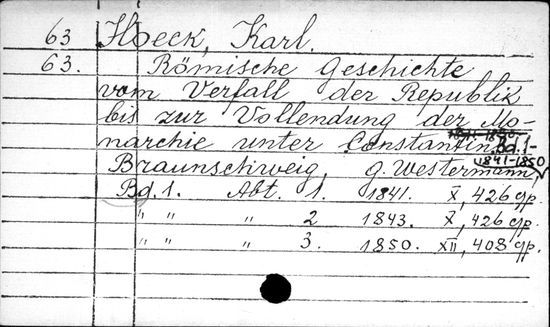 63 Hoeck, Karl.
63. Römische Geschichte
vom Verfall der Republik
bis zur Vollendung der Mo-
narchie unter Constantin. Bd. 1-
Braunschweig, G. Westermann, 1841-1850
Bd. 1. Abt. 1. 1841. X, 426 pp.
" " " 2 1843. X, 426 pp.
" " " 3. 1850. XII, 408 pp.